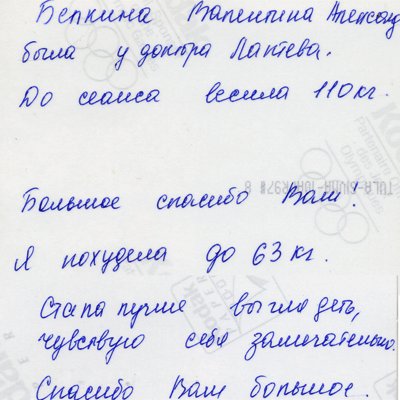 Белкина Валентина Александ
была у доктора Лаптева.
До сеанса весила 110 кг.
Большое спасибо Вам!
Я похудела до 63 кг.
Стала лучше выглядеть,
чувствую себя замечательно.
Спасибо Вам большое.